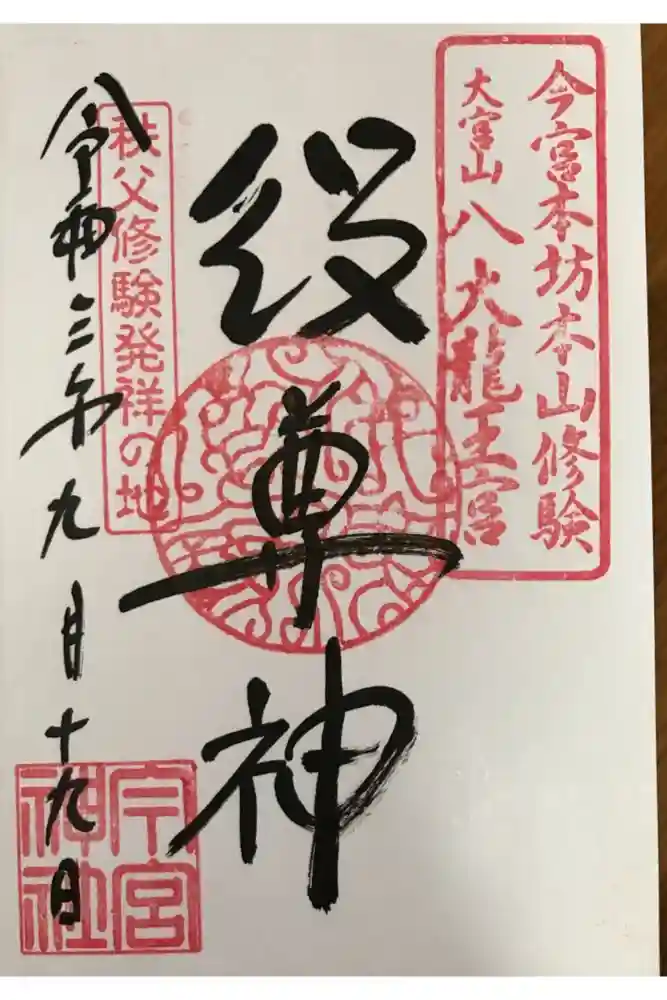 今宮本坊本山修験
大宮山八大龍王宮
役尊神
秩父修験発祥の地
令和三年九月十九日
今宮
神社